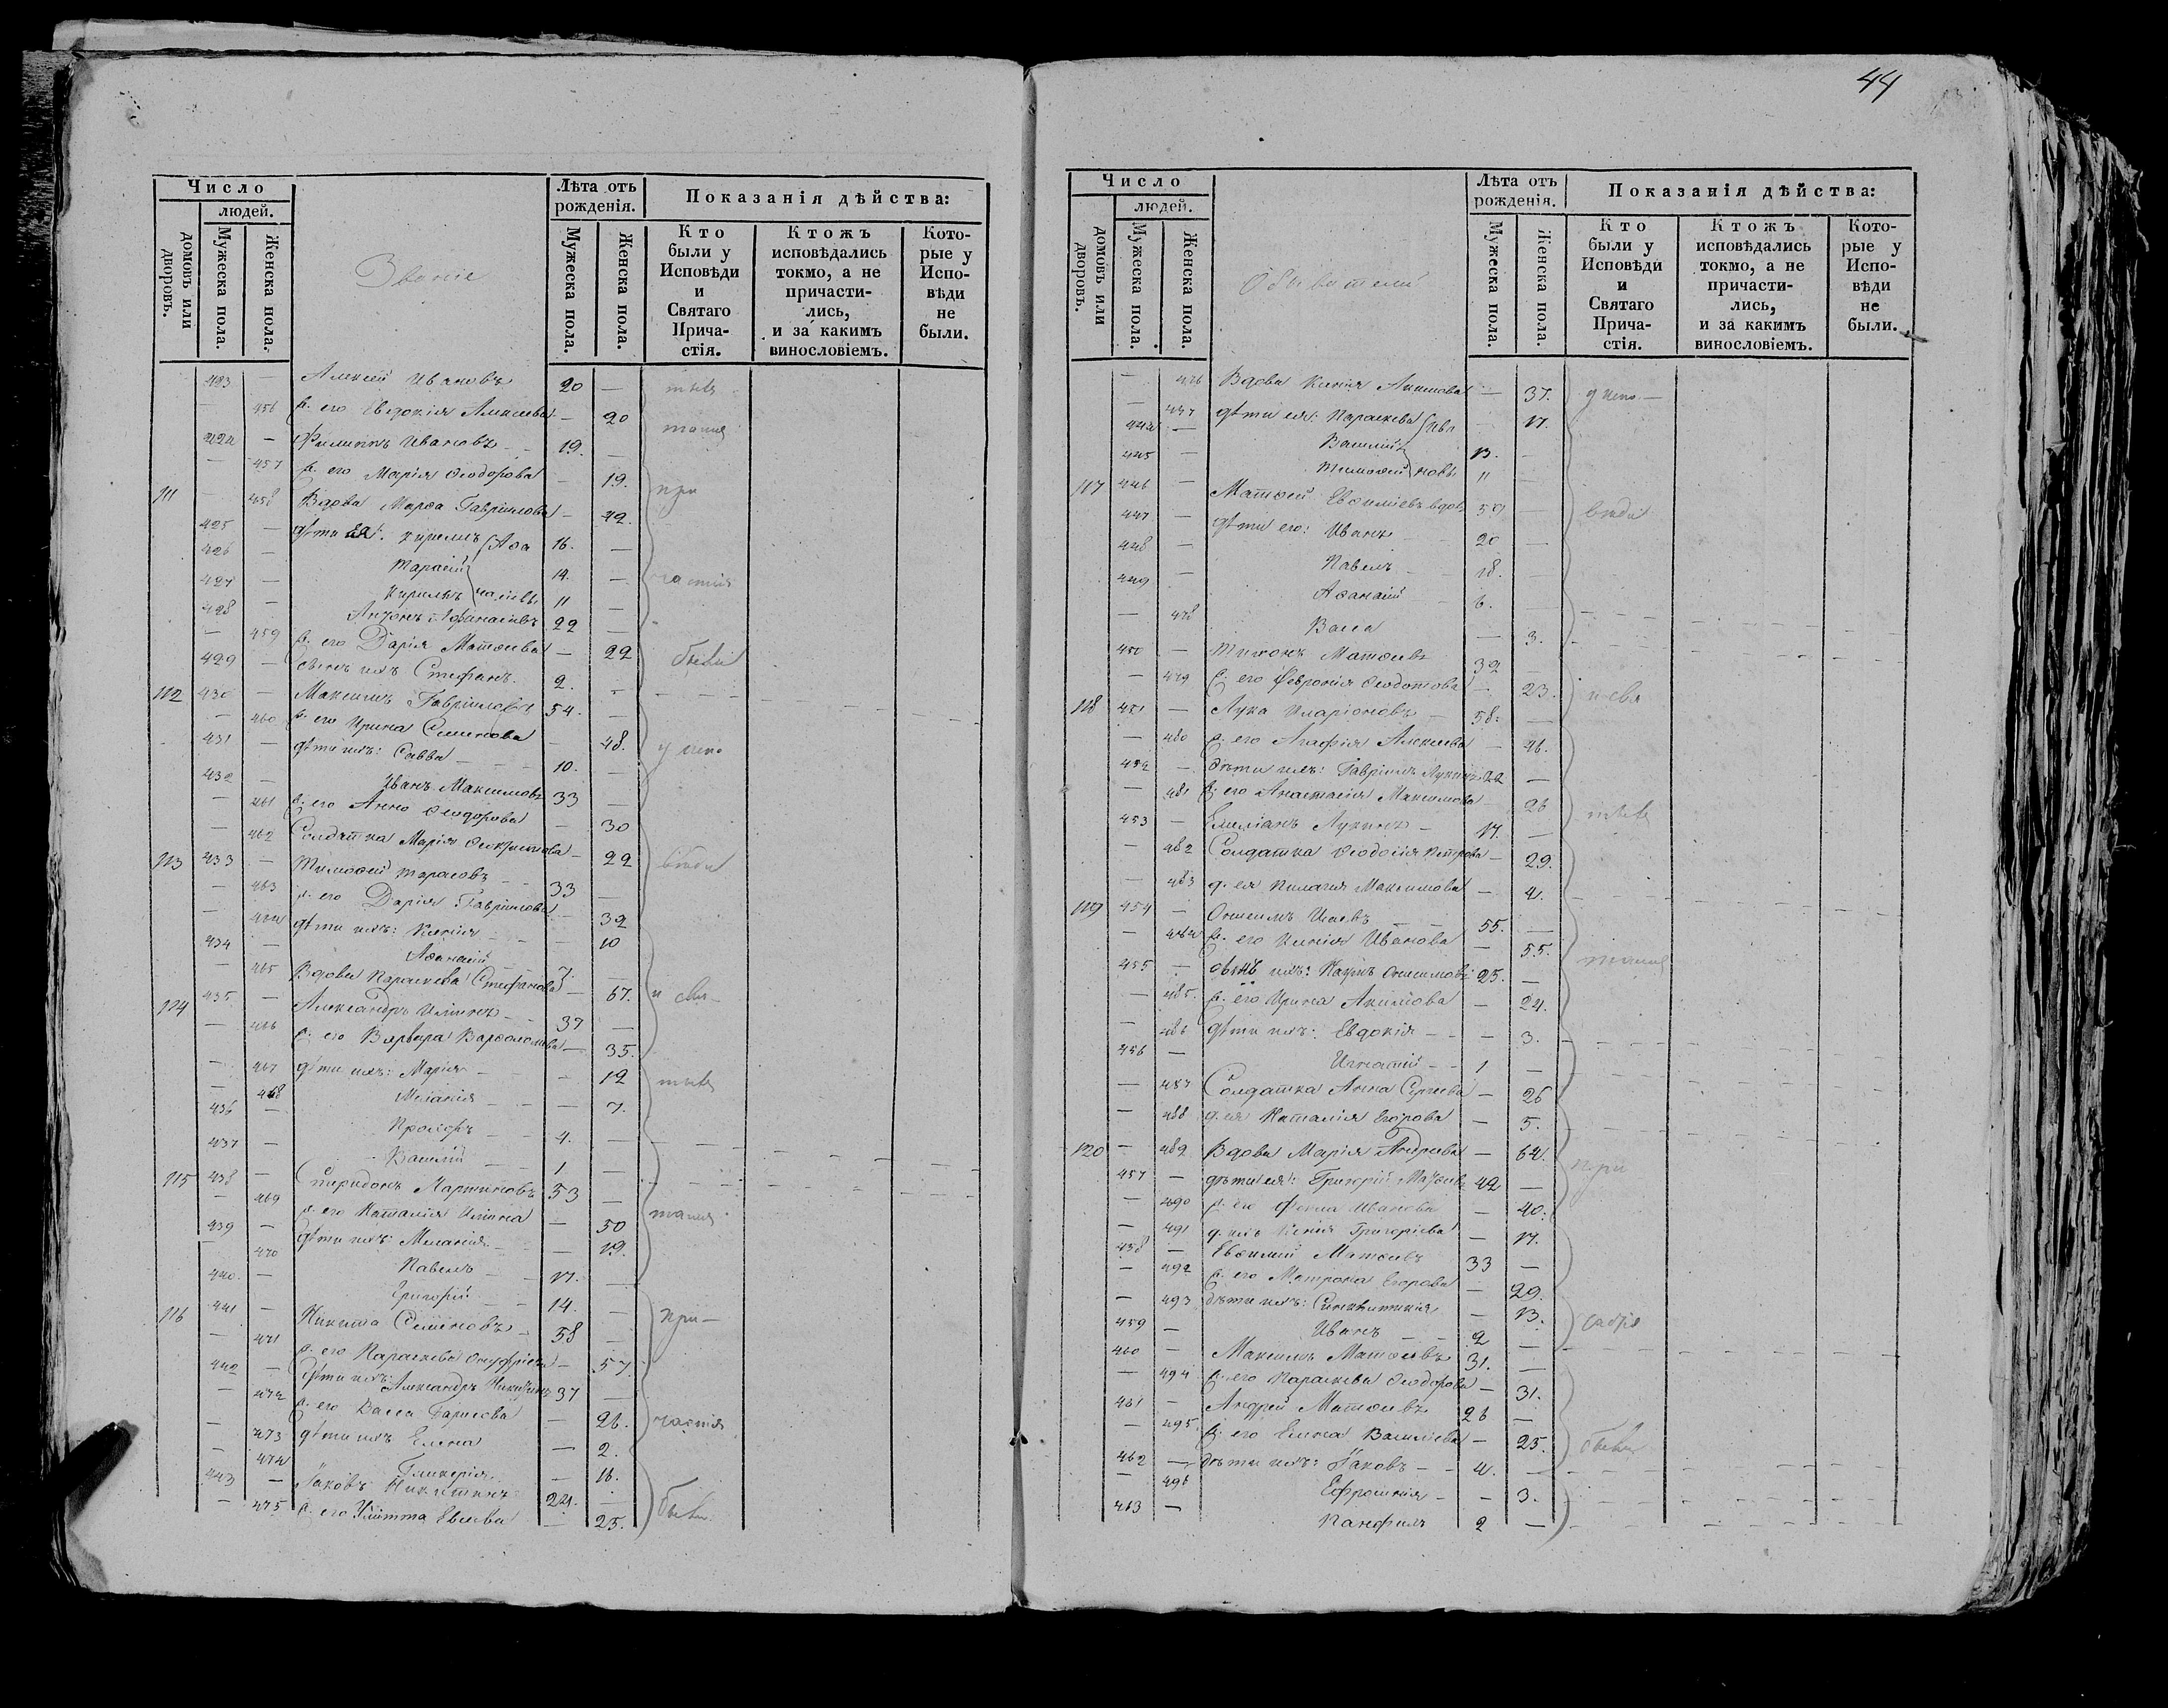 44
Число
людей.
домовъ или дворовъ.
Мужеска пола.
Женска пола.
Званіе
Лѣта отъ рожденія.
Мужеска пола.
Женска пола.
Показанія дѣйства:
Кто были у Исповѣди и Святаго Прича-стія.
Ктожъ исповѣдались токмо, а не причасти-лись, и за какимъ винословіемъ.
Кото-рые у Испо-вѣди не были.
423 — Алексѣй Ивановъ 20 —
— 456 ж. его Евдокія Алексѣева — 20
424 — Филиппъ Ивановъ 19. —
— 457 ж. его Марія Ѳеодорова — 19.
111 — 458 Вдова Марѳа Гавріилова — 42.
425 — дѣти ея: Кирилъ 16. —
426 — Тарасій 14. —
427 — Кирилъ 11 —
428 — 22 —
— 459 ж. его Дарія Матѳеева — 22
429 — сынъ ихъ Стефанъ. 2. —
112 430 — Максимъ Гавріиловъ 54. —
— 460 ж. его Ирина Семенова — 48.
431 — дѣти ихъ: Савва 10. —
432 — Иванъ Максимовъ 33 —
— 461 ж. его Анна Ѳеодорова — 30
— 462 Солдатка Марія — 22
113 433 — Тимоѳей Тарасовъ 33 —
— 463 ж. его Дарія Гавріилова — 32
— 464 дѣти ихъ: Ксенія — 10
434 — Аѳанасій 7. —
— 465 Вдова Параскева Стефанова — 67.
114 435 — Александръ Ильинъ 37 —
— 466 ж. его Варвара Варѳоломеева — 35.
— 467 дѣти ихъ: Марія — 12
— 468 Меланія — 7.
436 — 4. —
437 — Василій 1 —
115 438 — Спиридонъ Мартиновъ 53 —
— 469 ж. его Наталія Ильина — 50
439 — дѣти ихъ: Меланія — 19.
470 Павелъ 17. —
440 — Григорій 14. —
116 441 — Никита Семеновъ 58 —
— 471 ж. его Параскева Онуфріева — 57
442 — дѣти ихъ: Александръ Никитинъ 37 —
— 472 ж. его Васса Борисова — 26.
— 473 дѣти ихъ Елена — 2.
— 474 Гликерія — 16.
443 — Іаковъ Никитинъ 24. —
— 475 ж. его Улитта — 25.
Число
людей.
домовъ или дворовъ.
Мужеска пола.
Женска пола.
Обыватели
Лѣта отъ рожденія.
Мужеска пола.
Женска пола.
Показанія дѣйства:
Кто были у Исповѣди и Святаго Прича-стія.
Ктожъ исповѣдались токмо, а не причасти-лись, и за какимъ винословіемъ.
Кото-рые у Испо-вѣди не были.
— 476 Вдова Ксенія Акимова — 37.
— 477 дѣти ея: Параскева — 17.
444 — Василій 13. —
445 — Тимоѳей 11 —
117 446 — Матѳей Евѳиміевъ вдов. 59 —
447 — дѣти его: Иванъ 20 —
448 — Павелъ 18. —
449 — Аѳанасій 6. —
— 478 Васса — 3.
450 — Тихонъ Матѳеевъ 32 —
— 479 ж. его Февронія Ѳеодотова — 23.
118 451 — Лука Иларіоновъ 58. —
— 480 ж. его Агафія Алексѣева — 46.
452 — дѣти ихъ: Гавріилъ Лукинъ 22 —
— 481 ж. его Анастасія Максимова — 26
453 — Емеліанъ Лукинъ 17. —
— 482 Солдатка Ѳеодосія Петрова — 29.
— 483 д. ея Пелагія Максимова — 4.
119 454 — Онисимъ Исаевъ 55. —
— 484 ж. его Ксенія Иванова — 55.
455 — сынъ ихъ: Наумъ Онисимовъ 25. —
— 485. ж. его Ирина Акимова — 24.
— 486 дѣти ихъ: Евдокія — 3.
456 — Игнатій 1 —
— 487 Солдатка Анна Сергеева — 26
— 488 д. ея Наталія Егорова — 5.
120 — 489 Вдова Марія Андреева — 64.
457 — дѣти ея: Григорій 42 —
— 490 ж. его Фекла Иванова — 40.
— 491 д. ихъ Ксенія Григоріева — 17.
458 — Евѳимій Матѳеевъ 33 —
— 492 ж. его Матрона Егорова — 29.
— 493 дѣти ихъ: Синклитикія — 13.
459 — Иванъ 2 —
460 — Максимъ Матѳеевъ 31. —
— 494 ж. его Параскева Ѳеодорова — 31.
461 — Андрей Матѳеевъ 26 —
— 495 ж. его Елена Василіева — 25.
462 — дѣти ихъ: Іаковъ 4. —
— 496 Ефросинія — 3.
463 — Панфилъ 2 —